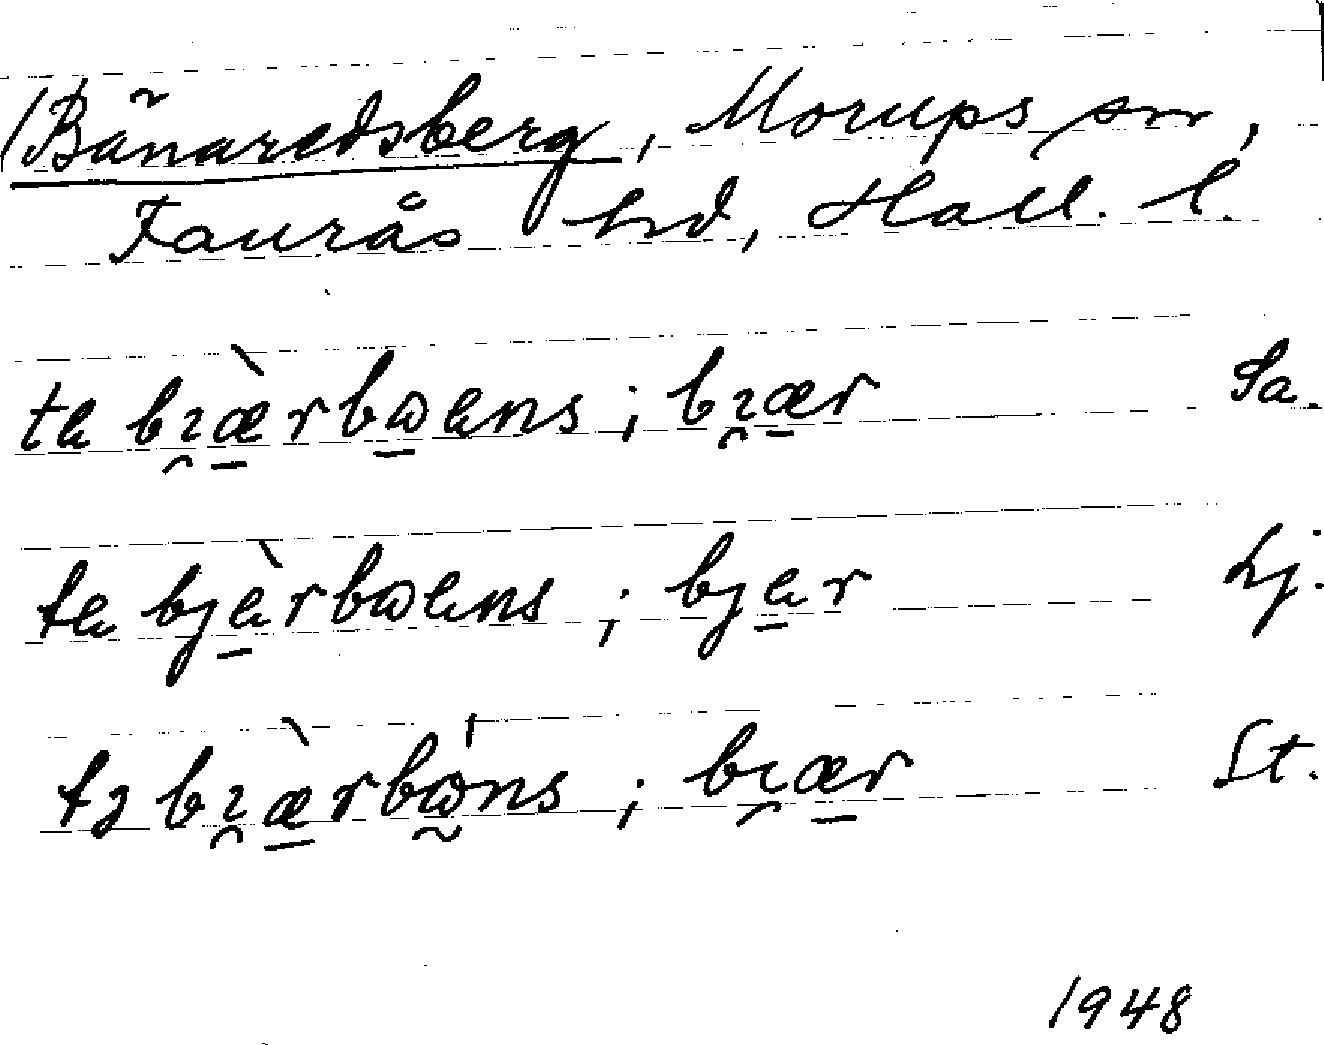 Bänaredsberg, Morups sn,
Faurås hd, Hall. l.
te bɿæ̀rbɷens ; bɿær Sa.
te bjèrbɷens ; bjer Lj.
tɜ bɿæ̀rbɷ'ns ; bɿær St.
1948